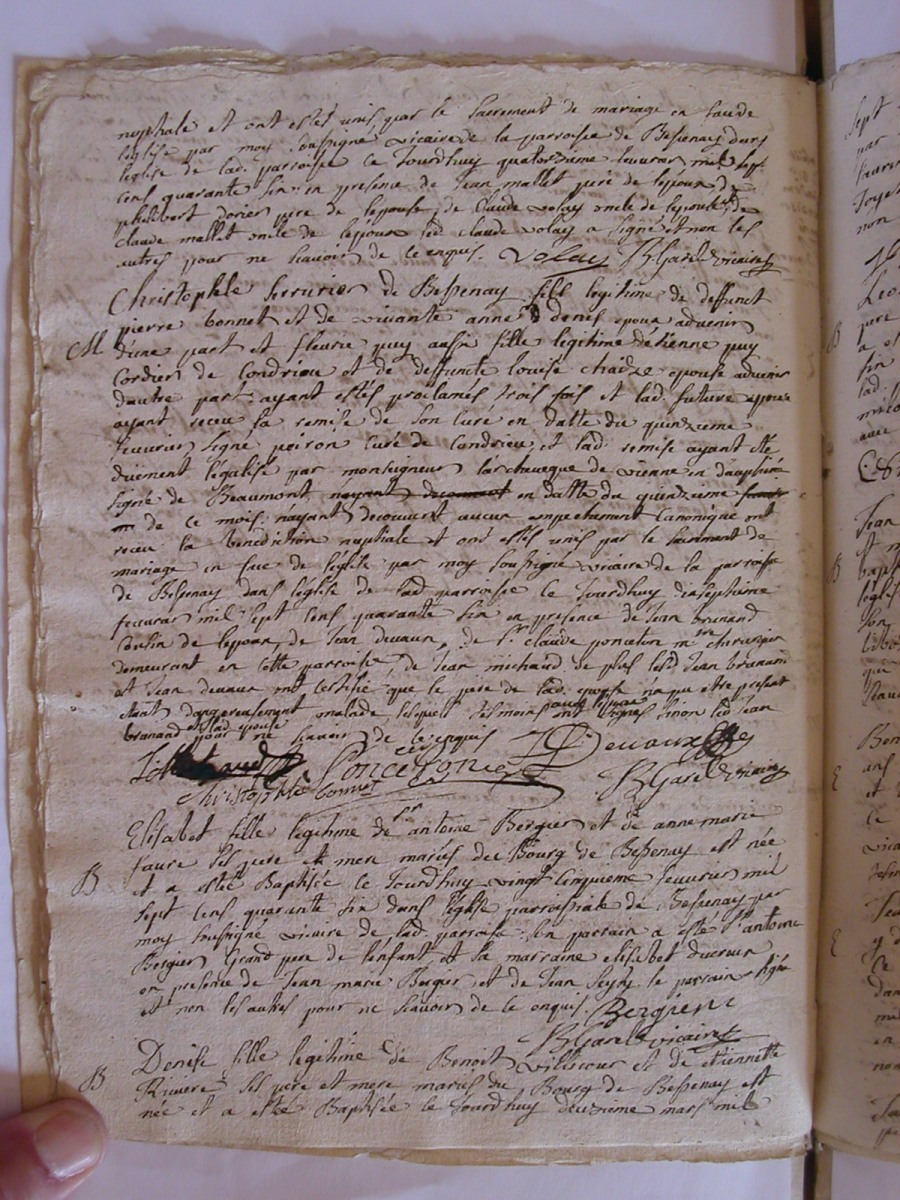 nuptiale et ont estés unis par le sacrement de mariage en face de
l'eglise par moy soussigné vicaire de la parroisse de Bessenay dans
l'eglise de lad. parroisse ce jourdhuy quatorzieme fevrier mil sept
cens quarante six in presence de Jean mallet pere de lepoux de
philibert dorier pere de lepouse, de Claude volay oncle de lepouse, de
claude mallet oncle de lepoux led claude volay a signé et non les
autres pour ne scavoir de ce enquis. Volay BGarel vicaire
Christophle serrurier de Bessenay fils legitime de deffunct
pierre bonnet et de vivante anne denis epoux advenir
M d'une part et fleurie puy aussi fille legitime détienne puy
Cordier de Condrieu et de deffuncte louise chaize epouse advenir
dautre part ayant estés proclamés trois fois et lad. future epouse
ayant receu sa remise de son curé en datte du quinzieme
fevrier signé peiron curé de Condrieu, et lad. remise ayant été
duement légalisé par monseigneur larcheveque de vienne en dauphiné
signé de Beaumont, nayant decouvert en datte du quinzieme
de ce mois. nayant decouvert aucun empechement Canonique ont
receu la benediction nuptiale et ont estés unis par le sacrement de
mariage en face de leglise par moy soussigné vicaire de la parroisse
de Bessenay dans léglise de lad parroisse ce jourdhuy dixseptieme
fevrier mil sept cens quarante six en présence de Jean branand
Cousin de lepoux, de Jean devaux, de Sr. claude ponceton me chirurgien
demeurant en cette parroisse, de Jean michaud de plus lesd Jean branand
et Jean devaux ont certifié que le pere de lad. epouse na pu etre present
etant dangereusement malade, lesquels tesmoins avec lepoux ont signés sinon led Jean
branand et lad. epouse pour ne scavoir de ce enquis
Ponceton JDevaux
Christophle bonnet BGarel vicaire
Elisabet fille legitime de sr antoine Bergier et de anne marie
faure ses pere et mere mariés du Bourg de Bessenay est née
B et a esté Baptisée ce jourdhuy vingt cinquieme fevrier mil
sept cens quarante six dans l'eglise parroissiale de Bessenay par
moy soussigné vicaire de lad. parroisse. son parrain a esté Sr antoine
Bergier Grand pere de l'enfant et sa marraine elisabet ducreux
en presence de Jean marie Berger et de Jean le parrain a signé
et non les autres pour ne scavoir de ce enquis. Bergier
BGarel vicaire
Denise fille legitime de Benoit villecour et de etiennette
B Riviere ses pere et mere mariés du Bourg de Bessenay est
née et a esté Baptisée le jourdhuy deuxieme mars mil